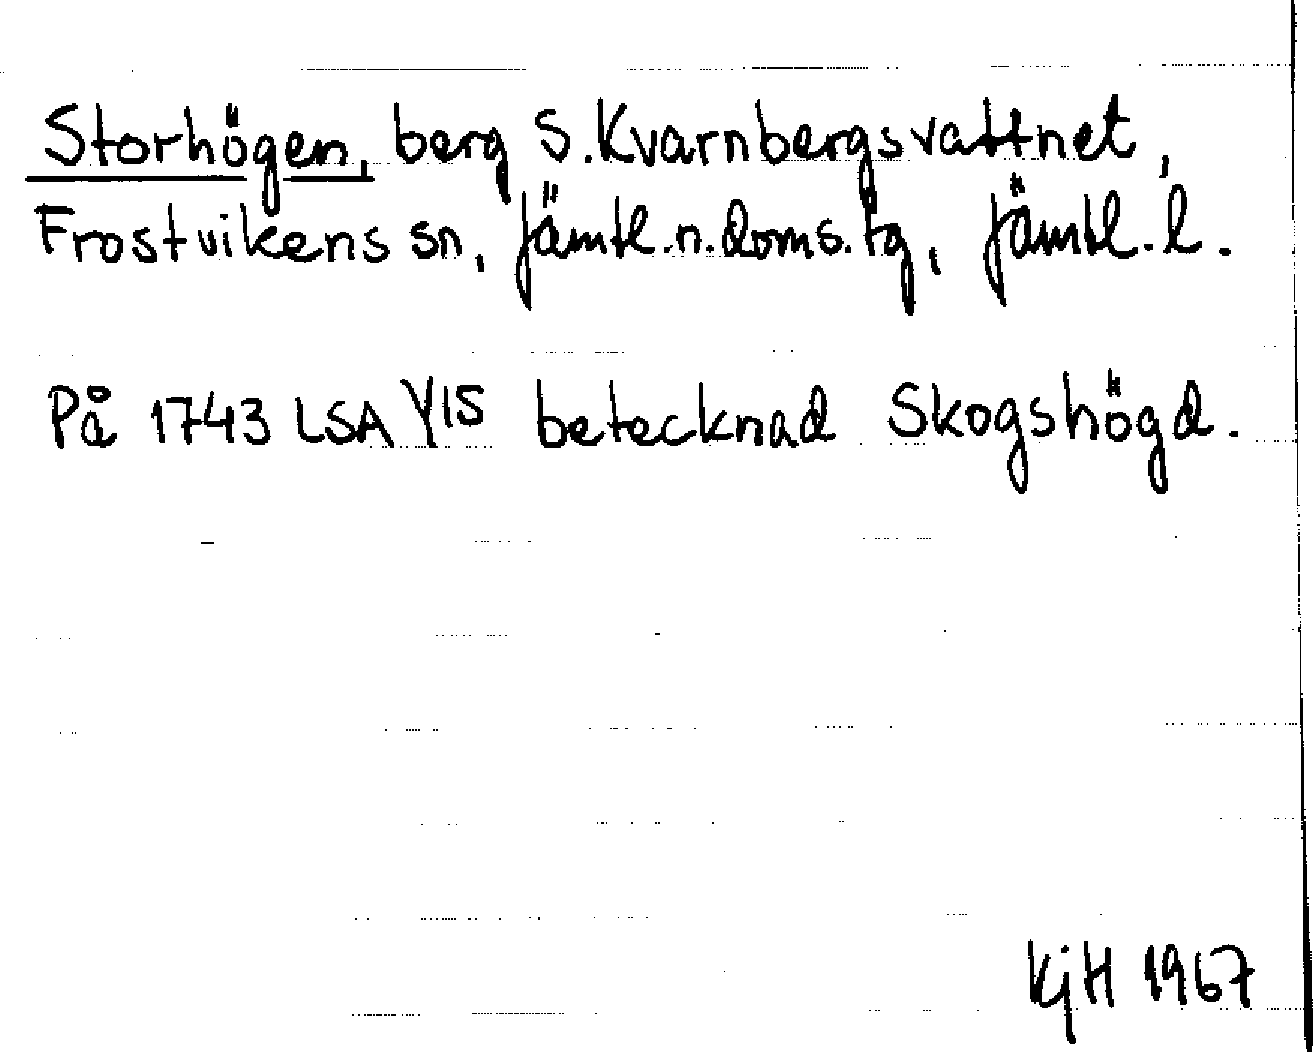 Storhögen, berg S. Kvarnbergsvattnet,
Frostvikens sn, Jämtl. n. doms. tg, Jämtl. l.
På 1743 LSA Y15 betecknad Skogshögd.
KjH 1967